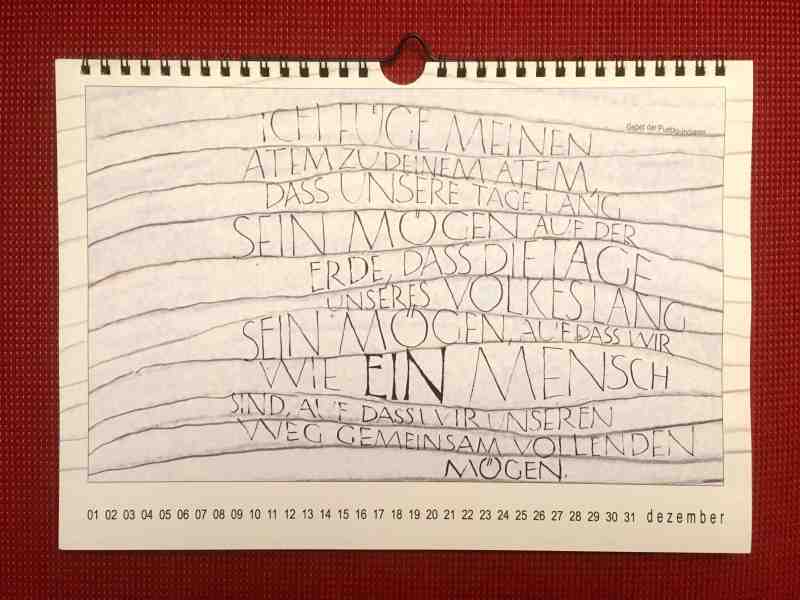 Gebet der Pueblo-Indianer
ICH FÜGE MEINEN
ATEM ZU DEINEM ATEM,
DASS UNSERE TAGE LANG
SEIN MÖGEN AUF DER
ERDE, DASS DIE TAGE
UNSERES VOLKES LANG
SEIN MÖGEN, AUF DASS WIR
WIE EIN MENSCH
SIND, AUF DASS WIR UNSEREN
WEG GEMEINSAM VOLLENDEN
MÖGEN.
01 02 03 04 05 06 07 08 09 10 11 12 13 14 15 16 17 18 19 20 21 22 23 24 25 26 27 28 29 30 31 dezember